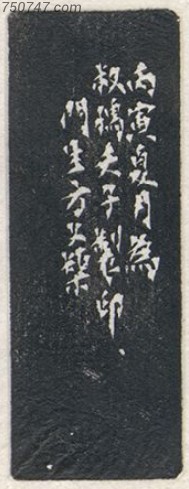 750747.com
丙寅夏月為
叔孺夫子製印、
門生方文榘